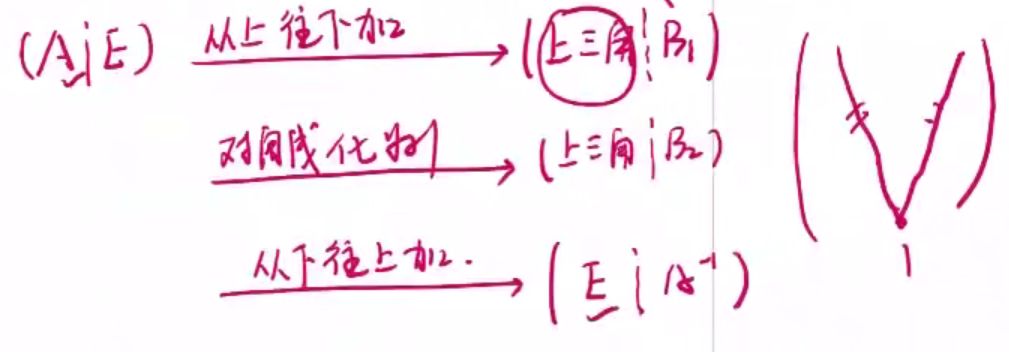 (A¦E) 从上往下加 (上三角¦B₁)
对角线化为1 (上三角¦B₂)
从下往上加. (E¦A⁻¹)
1